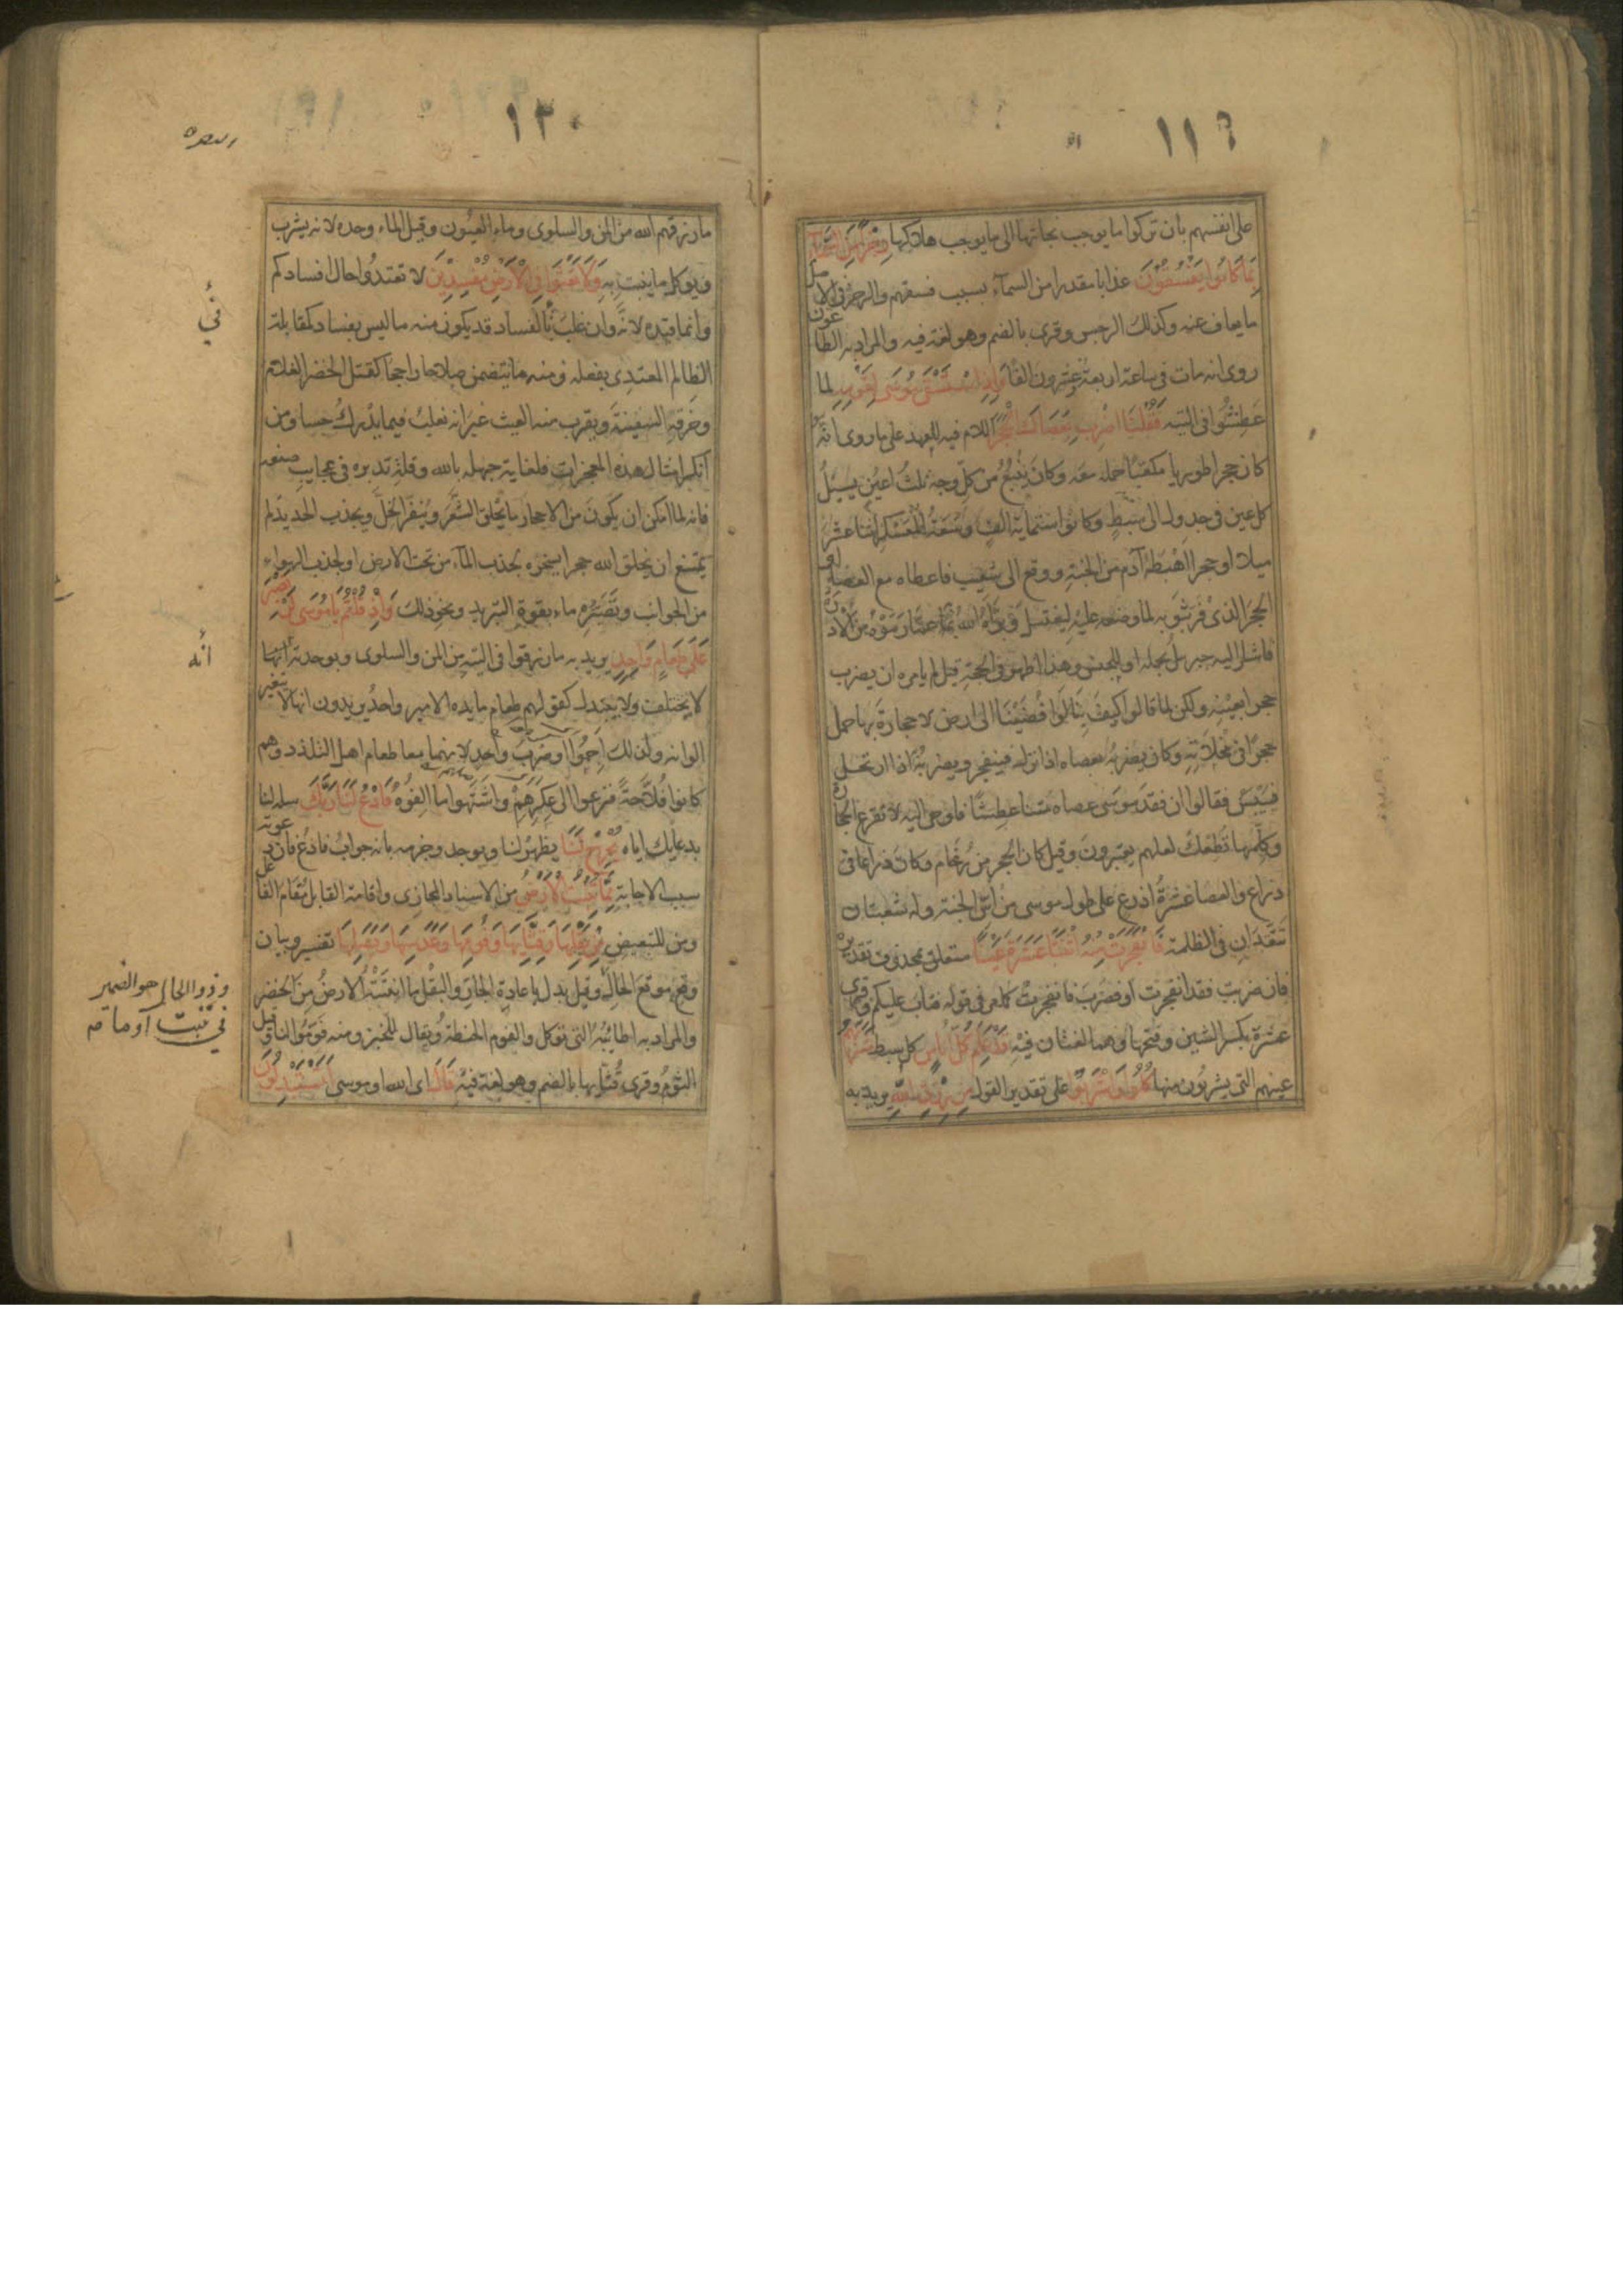 ١١٩
على انفسهم بان تركوا ما يوجب نجاتها الى ما يوجب هلاكها رِجْزًا مِنَ السَّمَآءِ
بِمَا كَانُوا يَفْسُقُوْنَ عذابا مقدرا من السمآء بسبب فسقهم والرجز فى الاصل
ما يعاف عنه وكذلك الرجس وقرى بالضم وهو لغة فيه والمراد به الطاعون
روى انه مات فى ساعة اربعة وعشرون الفا وَاِذِ اسْتَسْقَى مُوسَى لِقَوْمِهِ لما
عَطِشُوا فى التيه فَقُلْنَا اضْرِبْ بِعَصَاكَ الْحَجَرَ اللام فيه للعهد على ما روى انه
كان حجرا طوريا مكعبًا حمله معه وكان يَنْبُعُ من كل وجه ثلث اعيُنٍ يسيلُ
كل عين فى جدول الى سِبطٍ وكانوا ستمائة الفٍ وسَعَةُ المُعَسْكَرِ اثنا عشر
ميلا او حجرا اَهْبَطَهُ آدم من الجنةِ ووقع الى شعيب فاعطاه مع العصا او
الحجرَ الذىْ فَرَّ بثَوبه لما وضعه عليْه ليغتسل وبَرَّأهُ اللهُ بهِ عمَّا رَمَوْهُ من الاُدرة
فاشار اليه جبريل بحمله او للجنس وهذا اظهر فى الحجة قيل لم يامره ان يضرب
حجرا بعينْه ولكن لما قالوا كيفَ بنا لَوْ اَفْضَيْنَا الى ارض لا حجارةَ بها حمل
حجرًا فى مِخْلاَتِهِ وكان يضربُه بعصاه اذا نزل فينفجر ويضربُه اذا ارتحل
فَيَيْبَسُ فقالوا ان فقدَ موسى عصاه مُتنا عطشًا فاوحى اليه لا تقرع الحجارة
وكلِّمها تُطِعْكَ لعلهم يعتبرونَ وقيل كان الحجر من رُخَام وكان ذراعا فى
ذراع والعصا عشرةُ اذرع على طول موسى من اسِ الجنة وله شعبتان
تتَّقِدَانِ فى الظلمة فَانْفَجَرَتْ مِنْهُ اثْنَتَا عَشْرَةَ عَيْنًا متعلق بمحذوف تقديره
فان ضربت فقد انفجرت او فضربَ فانفجرتْ كما مر فى قوله فتاب عليكم وقرى
عشرة بكسر الشين وفتحها وهما لغتان فيْه قَدْ عَلِمَ كُلُّ اُنَاسٍ كل سبط مَشْرَبَهُمْ
عينهم التى يشربُون منها كُلُوا وَاشْرَبُوا على تقدير القول مِنْ رِزْقِ اللهِ يريد به
١٢٠
مارزقهم الله من المن والسلوى وماء العيُون وقيل الماء وحده لانه يشرب
ويوكل ما ينبت بِهِ وَلَا تَعْثَوْا فِى الْاَرْضِ مُفْسِدِيْنَ لا تعتدُوا حال افسادكم
وانما قيّده لانّه وان غلبَ فى الفساد قد يكون منه ما ليس بفساد كمقابلة
الظالم المعتدِى بفعله ومنه ما يتضمن صلاحا راجحًا كقتل الخضر الغلام
وخرقهِ السفينةَ ويقرب منه العيث غيرَ انه يغلبُ فيما يدْركُ حسا ومن
انكر امثال هذه المعجزات فلغاية جهله بالله وقلةِ تدبره فى عجايبِ صنعه
فانه لما امكن ان يكونَ من الاحجار ما يَحلق الشَّعَرَ ويُنفّرُ الخلَّ ويجذب الحديدَ لم
يَمتنعْ ان يخلق الله حجرا يسخره لجذب المآء من تحت الارض او لجذب الهواء
من الجوانب وتَصَيُّرِهِ ماء بقوة التبريد ونحو ذلك وَاِذْ قُلْتُمْ يَا مُوْسَى لَنْ نَصْبِرَ
عَلَى طَعَامٍ وَاحِدٍ يريد به ما رزقوا فى التيْهِ من المن والسلوى وبوحدته انّها
لا يختلف ولا يتبدل كقولهم طعام مايده الامير واحدٌ يريدون انها لا يتغير
الوانه ولذلك اَجِمُوا او ضربَ واحد لانهما معا طعام اهل التلذذ وهم
كانوا فلاَّحةً فنزعوا الى عِكرِهِمْ واشتَهوا ما اَلِفُوهُ فَادْعُ لَنَا رَبَّكَ سله لنا
بدعايك اياه يُخْرِجْ لَنَا يظهرْ لنا ويوجد وجزمه بانه جوابُ فادعُ فان دعوته
سبب الاجابةِ مِمَّا تُنْبِتُ الْاَرْضُ من الاسناد المجازى واقامة القابل مُقَامَ الفاعل
ومن للتبعيض مِنْ بَقْلِهَا وَقِثَّائِهَا وَفُوْمِهَا وَعَدَسِهَا وَبَصَلِهَا تفسير وبيان
وقعَ موقعَ الحالِ وقيل بدل باعادةِ الجارّ والبقْل ما انبتَتْهُ الارضُ من الخضر
والمراد به اطائبُهُ التى توكل والفوم الحنطة ويقال للخبز ومنه فَوّمُوا لنا وقيل
الثومُ وقرى قُثَّائِها بالضم وهو لغة فيْه قَالَ اى الله او موسى اَتَسْتَبْدِلُوْنَ
فى
انه
وذو الحال هو الضمير
فى تنبت او ما